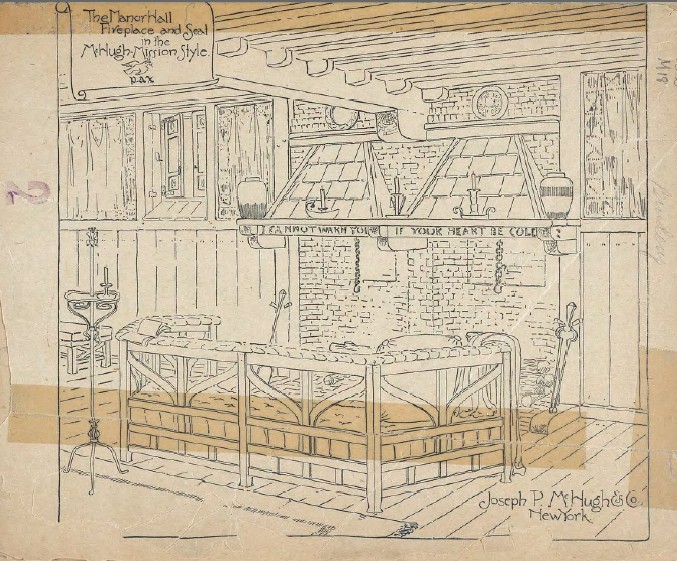 The Manor Hall
Fireplace and Seat
in the
McHugh-Mission Style.
pax
I CANNOT WARM YOU IF YOUR HEART BE COLD
Joseph P. McHugh & Co.
New York
2